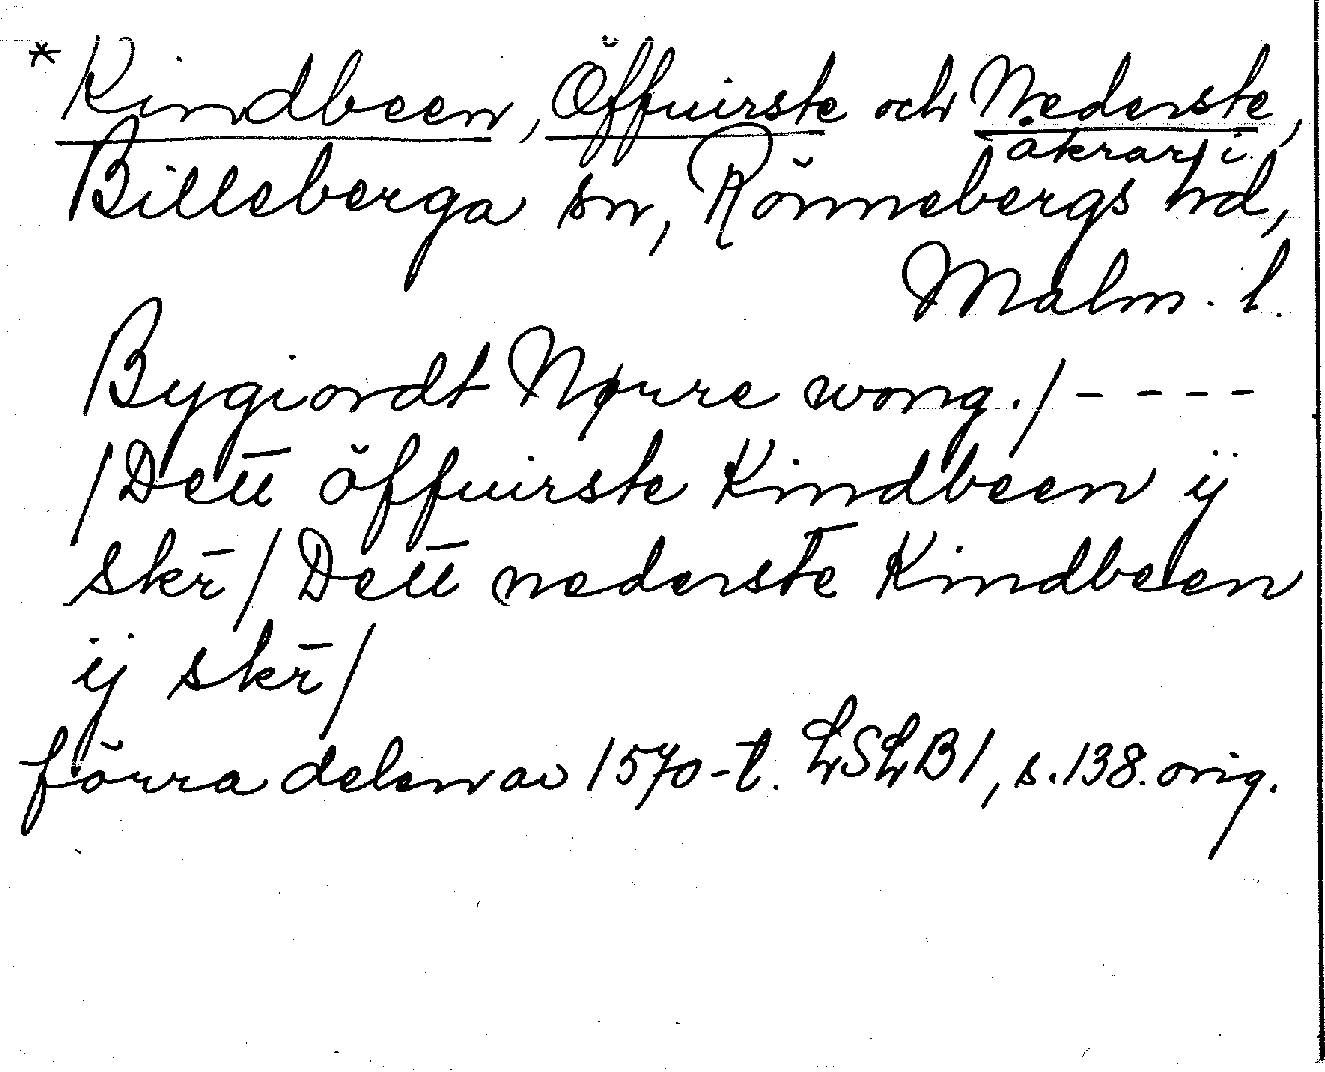 * Kindbeen, Öffuirste och Nederste,
åkrar i
Billeberga sn, Rönnebergs hd,
Malm. l.
Bygiordt Nørre wong./----
/Dett̄ öffuirste Kindbeen ij
skr̄/Dett̄ nederstē Kindbeen
ij skr̄/
förra delen av 1570-t. LSLB1, s.138. orig.